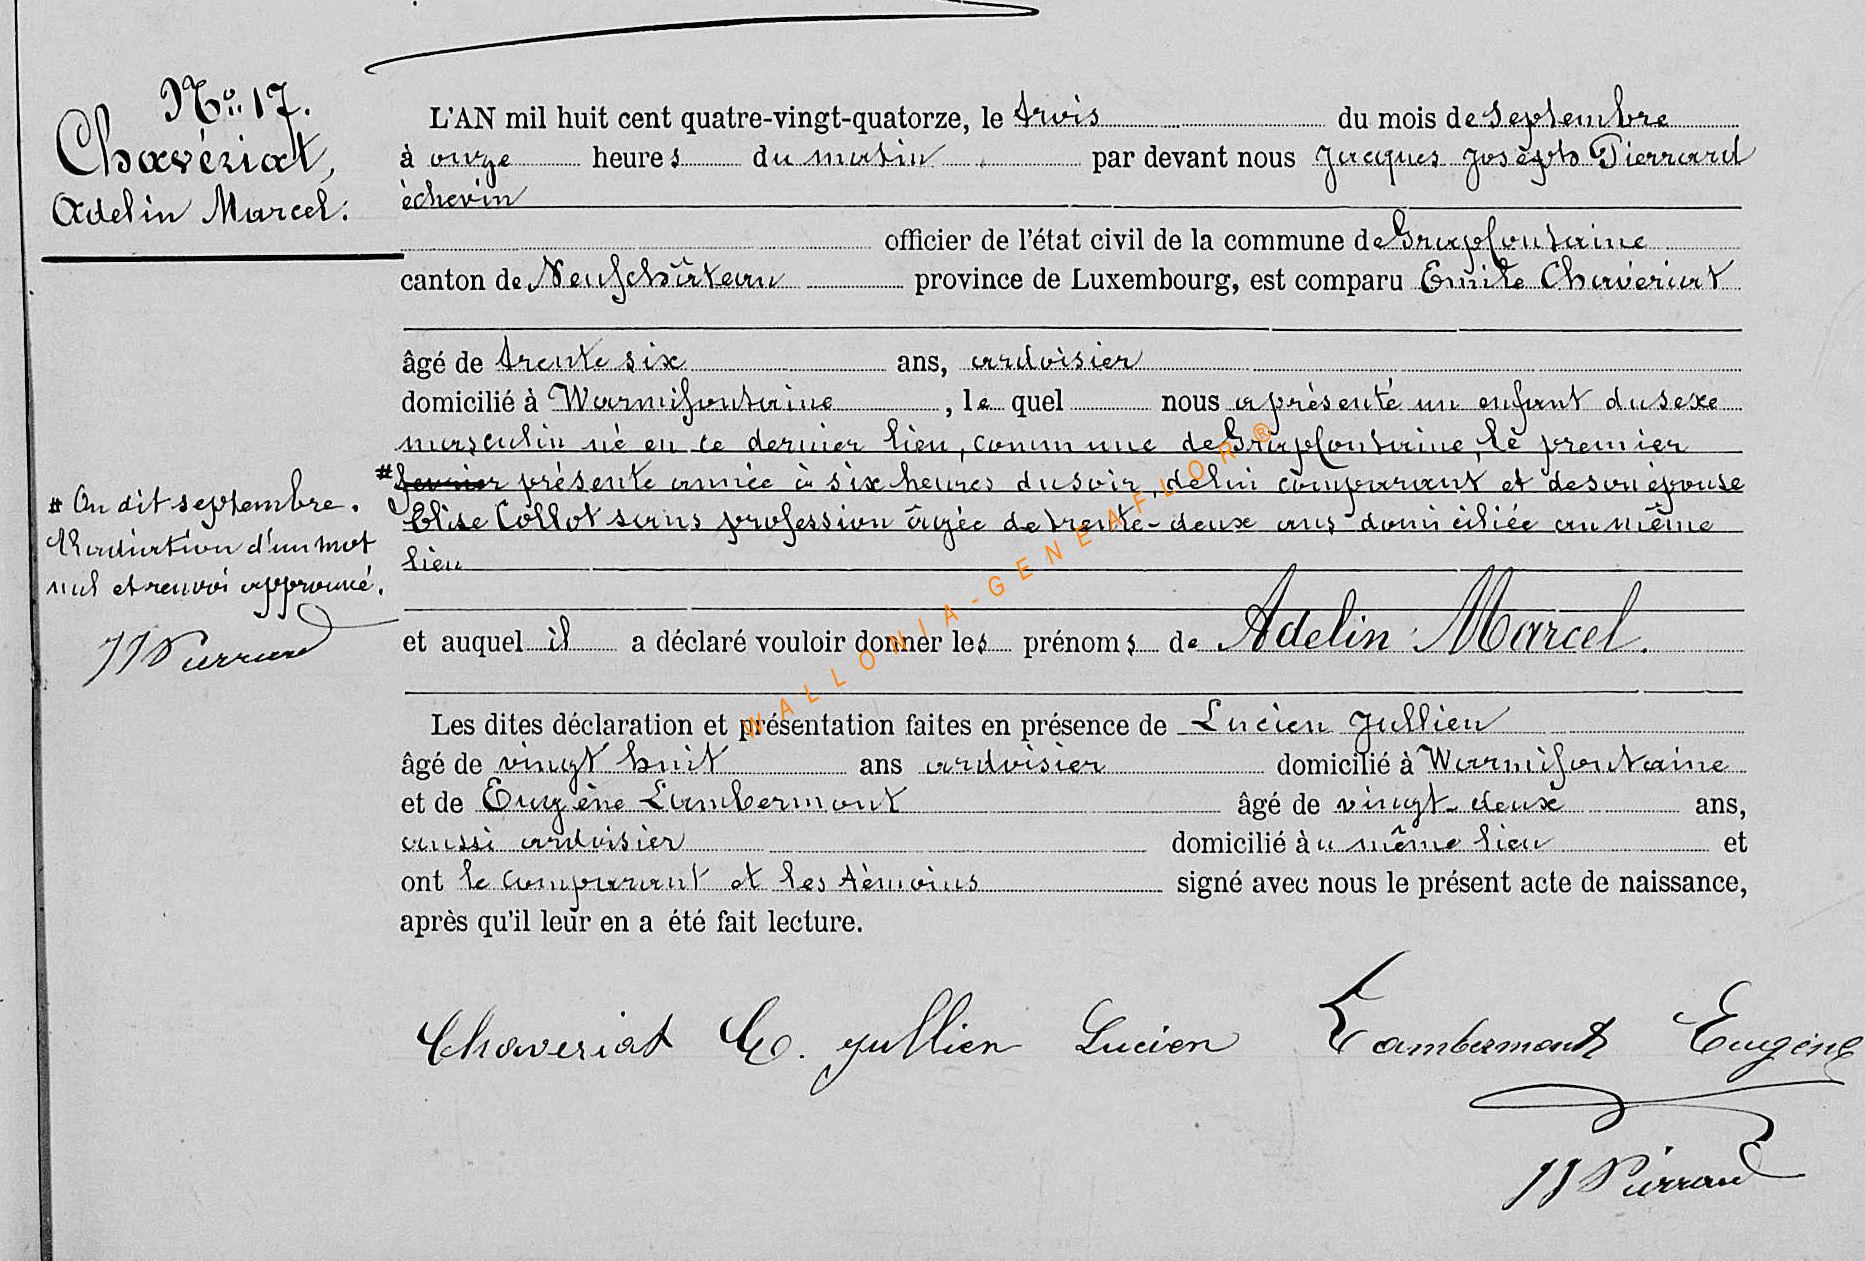 No. 17.
Chavériat,
Adelin Marcel.
L'AN mil huit cent quatre-vingt-quatorze, le trois du mois de septembre
à onze heures du matin par devant nous Jacques Joseph Pierrard
échevin
officier de l'état civil de la commune de Grapfontaine
canton de Neufchâteau province de Luxembourg, est comparu Emile Chavériat
âgé de trente six ans, ardoisier
domicilié à Warmifontaine, le quel nous a présenté un enfant du sexe
masculin né en ce dernier lieu, commune de Grapfontaine, le premier
# février présente année à six heures du soir, de lui comparant et de son épouse
Elise Collot sans profession âgée de trente-deux ans domiciliée au même
lieu
# On dit septembre.
Radiation d'un mot
nul et renvoi approuvé.
JJ Pierrard
et auquel il a déclaré vouloir donner les prénoms de Adelin Marcel.
Les dites déclaration et présentation faites en présence de Lucien Jullien
âgé de vingt huit ans ardoisier domicilié à Warmifontaine
et de Eugène Lambermont âgé de vingt-deux ans,
aussi ardoisier domicilié au même lieu et
ont le comparant et les témoins signé avec nous le présent acte de naissance,
après qu'il leur en a été fait lecture.
Chaveriat E. Jullien Lucien Lambermont Eugène
JJ Pierrard
WALLONIA-GENEAFLOR ®